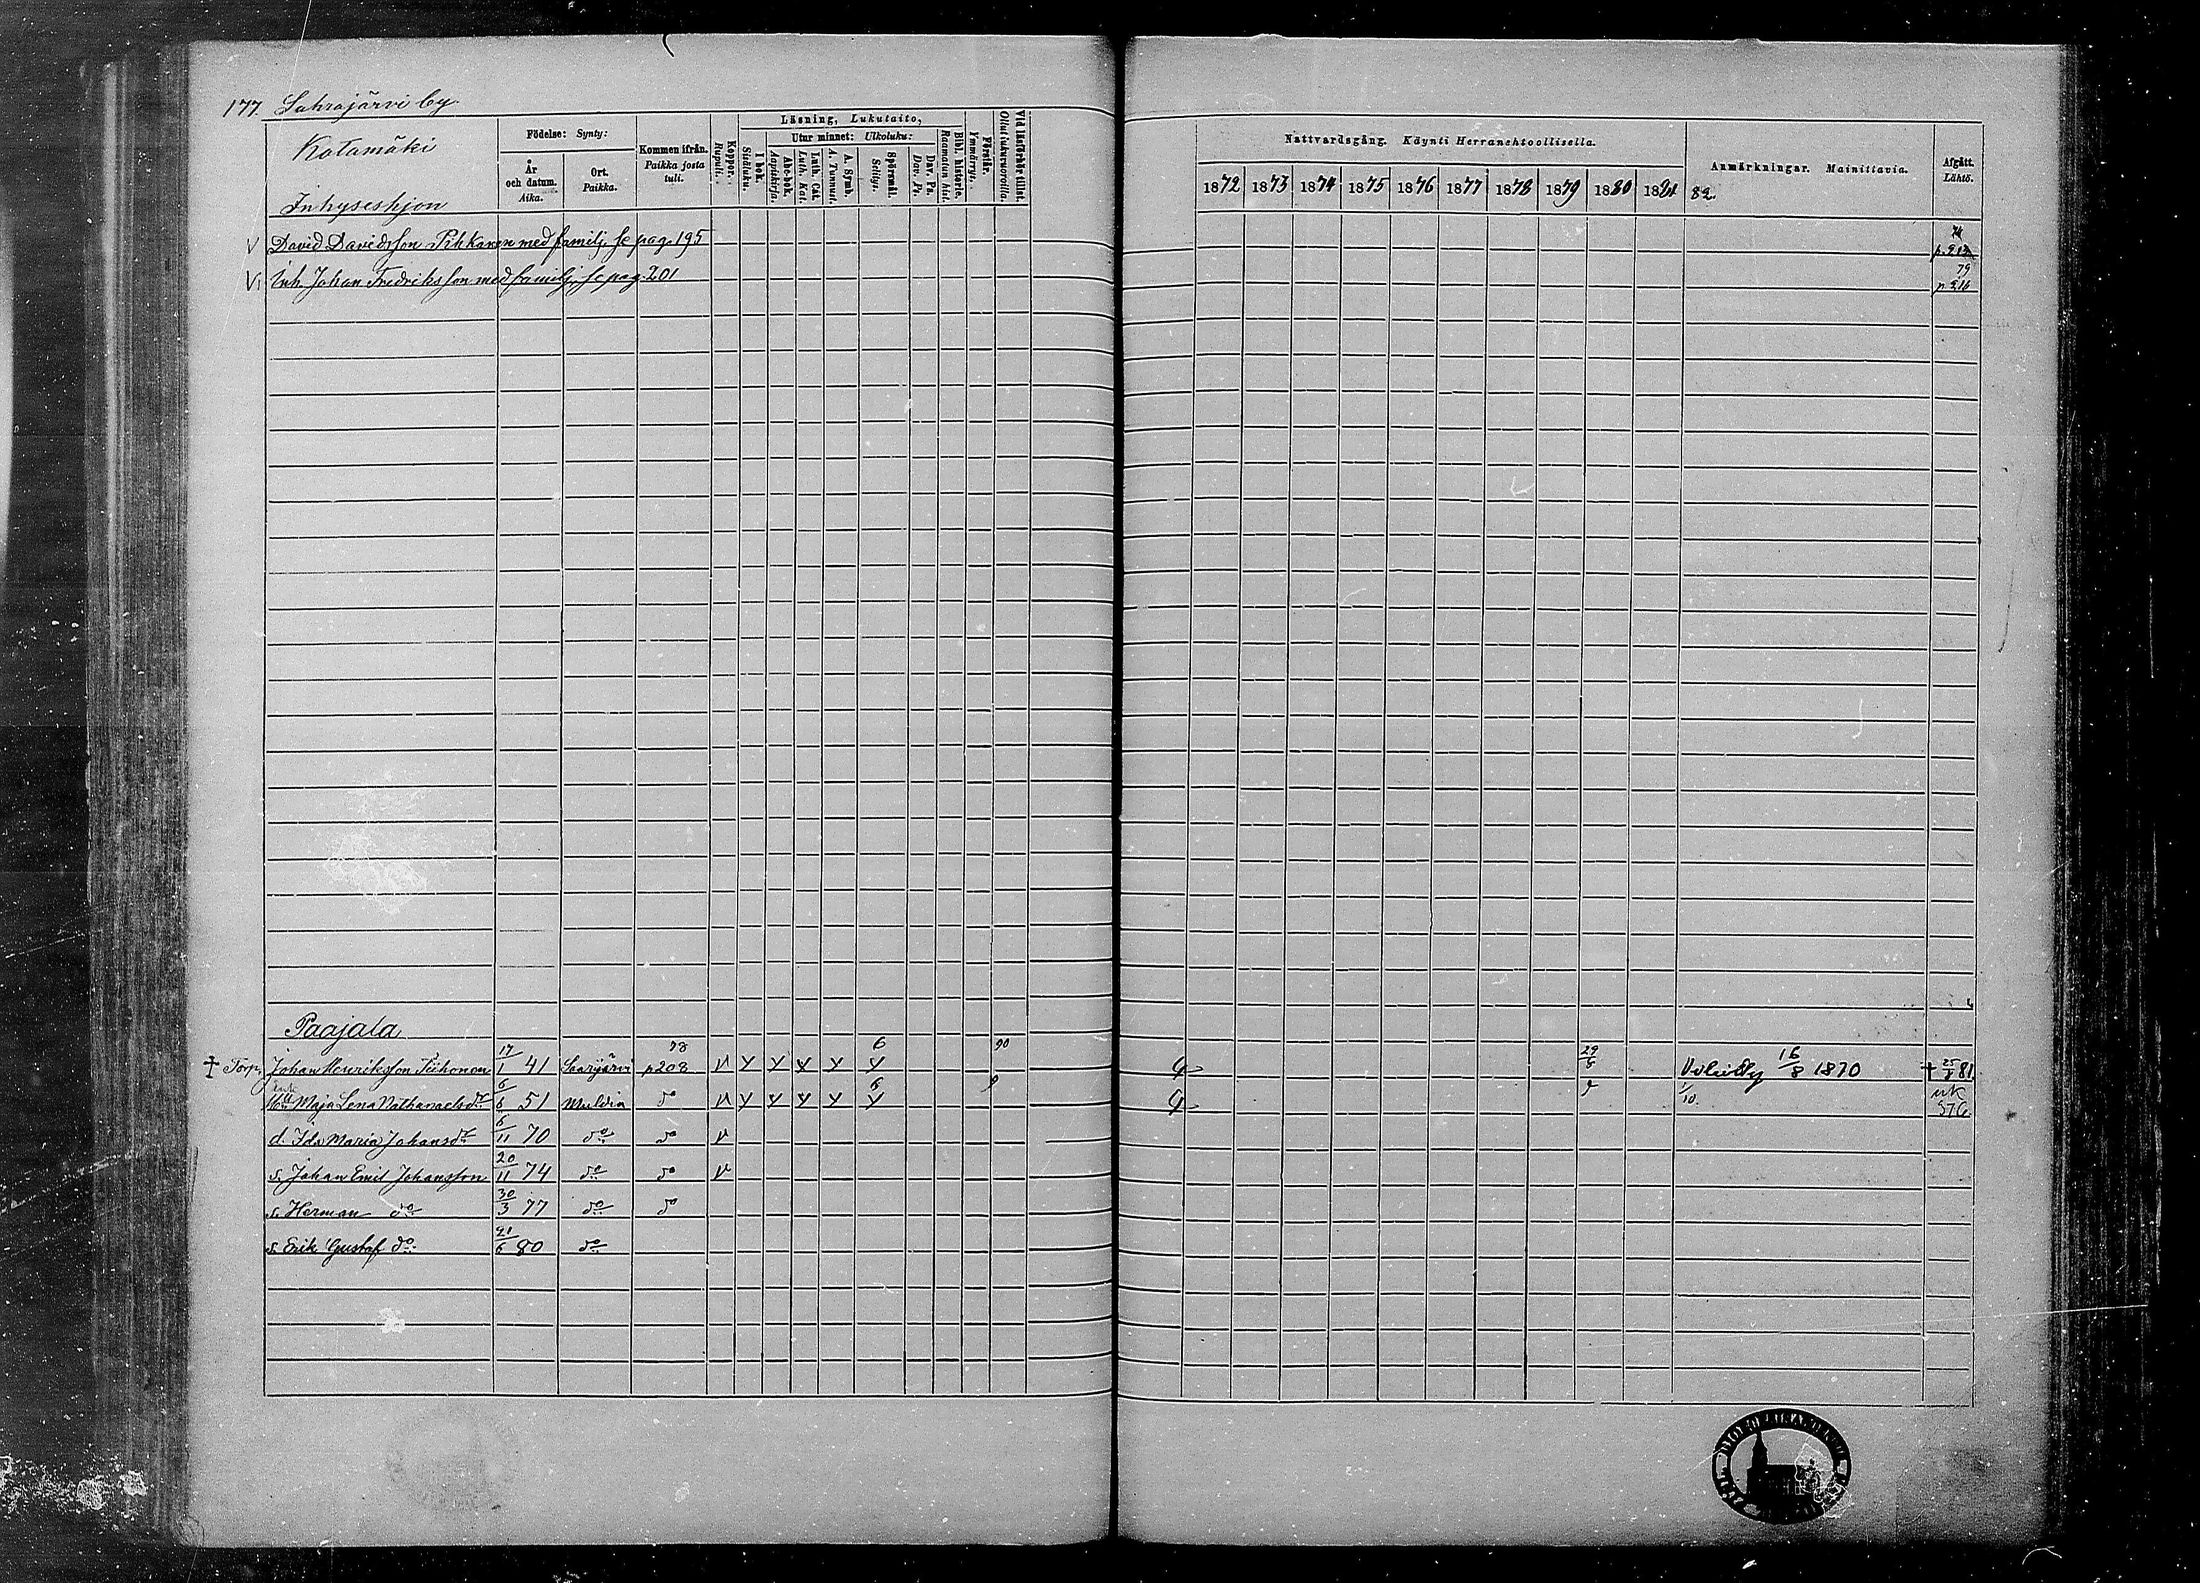 177. Sahrajärvi by.
Katamäki
Inhyseshjon
Födelse: Synty:
År och datum. Aika.
Ort. Paikka.
Kommen ifrån. Paikka josta tuli.
Koppor. Rupuli.
Läsning, Lukutaito,
I bok. Sisäluku.
Utur minnet: Ulkoluku:
Abc-bok. Aapiskirja.
Luth. Cat. Luth. Kat.
A. Symb. A. Tunnust.
Spörsmål. Selitys.
Dav. Ps. Dav. Ps.
Bibl. historie. Raamatun hist.
Förstår. Ymmärrys.
Vid läsförhör tillst. Ollut lukuvuorolla.
Nattvardsgång. Käynti Herranehtoollisella.
1872 1873 1874 1875 1876 1877 1878 1879 1880 1881 82.
Anmärkningar. Mainittavia.
Afgått. Lähtö.
V David Davidsson Pihkanen med familj, se pag. 195
V Inh. Johan Fredriksson med familj, se pag. 201 79 p 216
Paajala
† Torp. Johan Henriksson Tiihonen 17/1 41 Saarijärvi 78 p208 6 90 29/8 16/8 1870 † 25/8 81
Enk. Maja Lena Nathanaelsdr 6/6 51 Muldia do 6 9 1/10. uk 576
d. Ida Maria Johansdr 6/11 70 do do
s. Johan Emil Johansson 20/11 74 do do
s. Herman do 30/3 77 do do
s. Erik Gustaf do 21/6 80 do